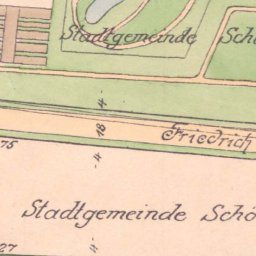 Stadtgemeinde Schö
4
18
Friedrich
75
4
Stadtgemeinde Schö
27